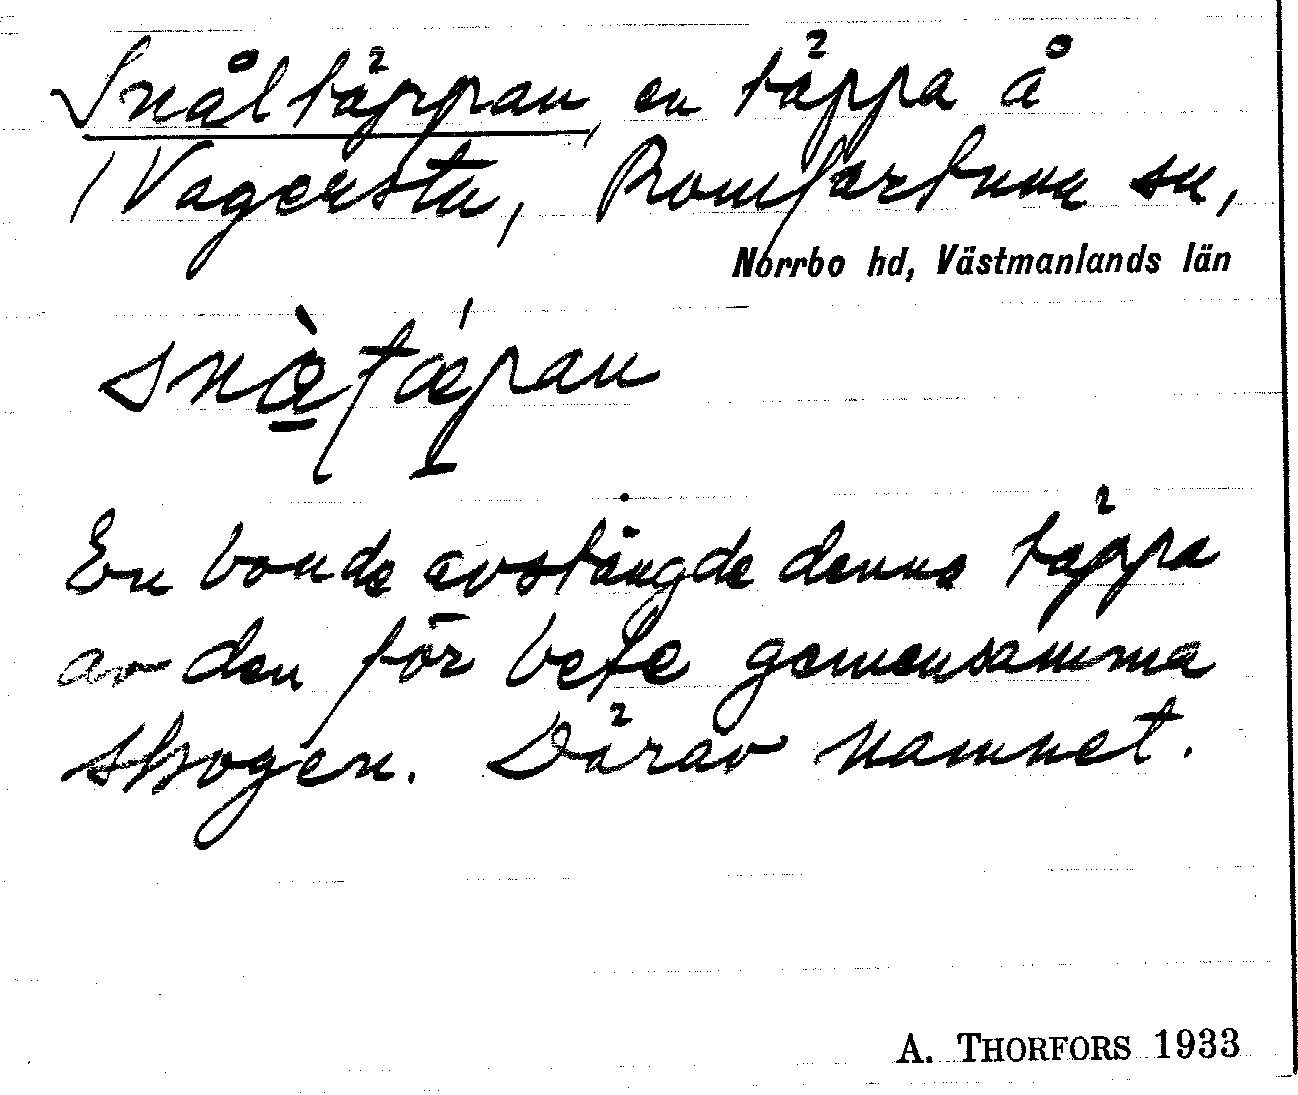 Snåltäppan, en täppa å
Vagersta, Romfartuna sn,
Norrbo hd, Västmanlands län
En bonde avstängde denna täppa
av den för bete gemensamma
skogen. Därav namnet.
A. THORFORS 1933